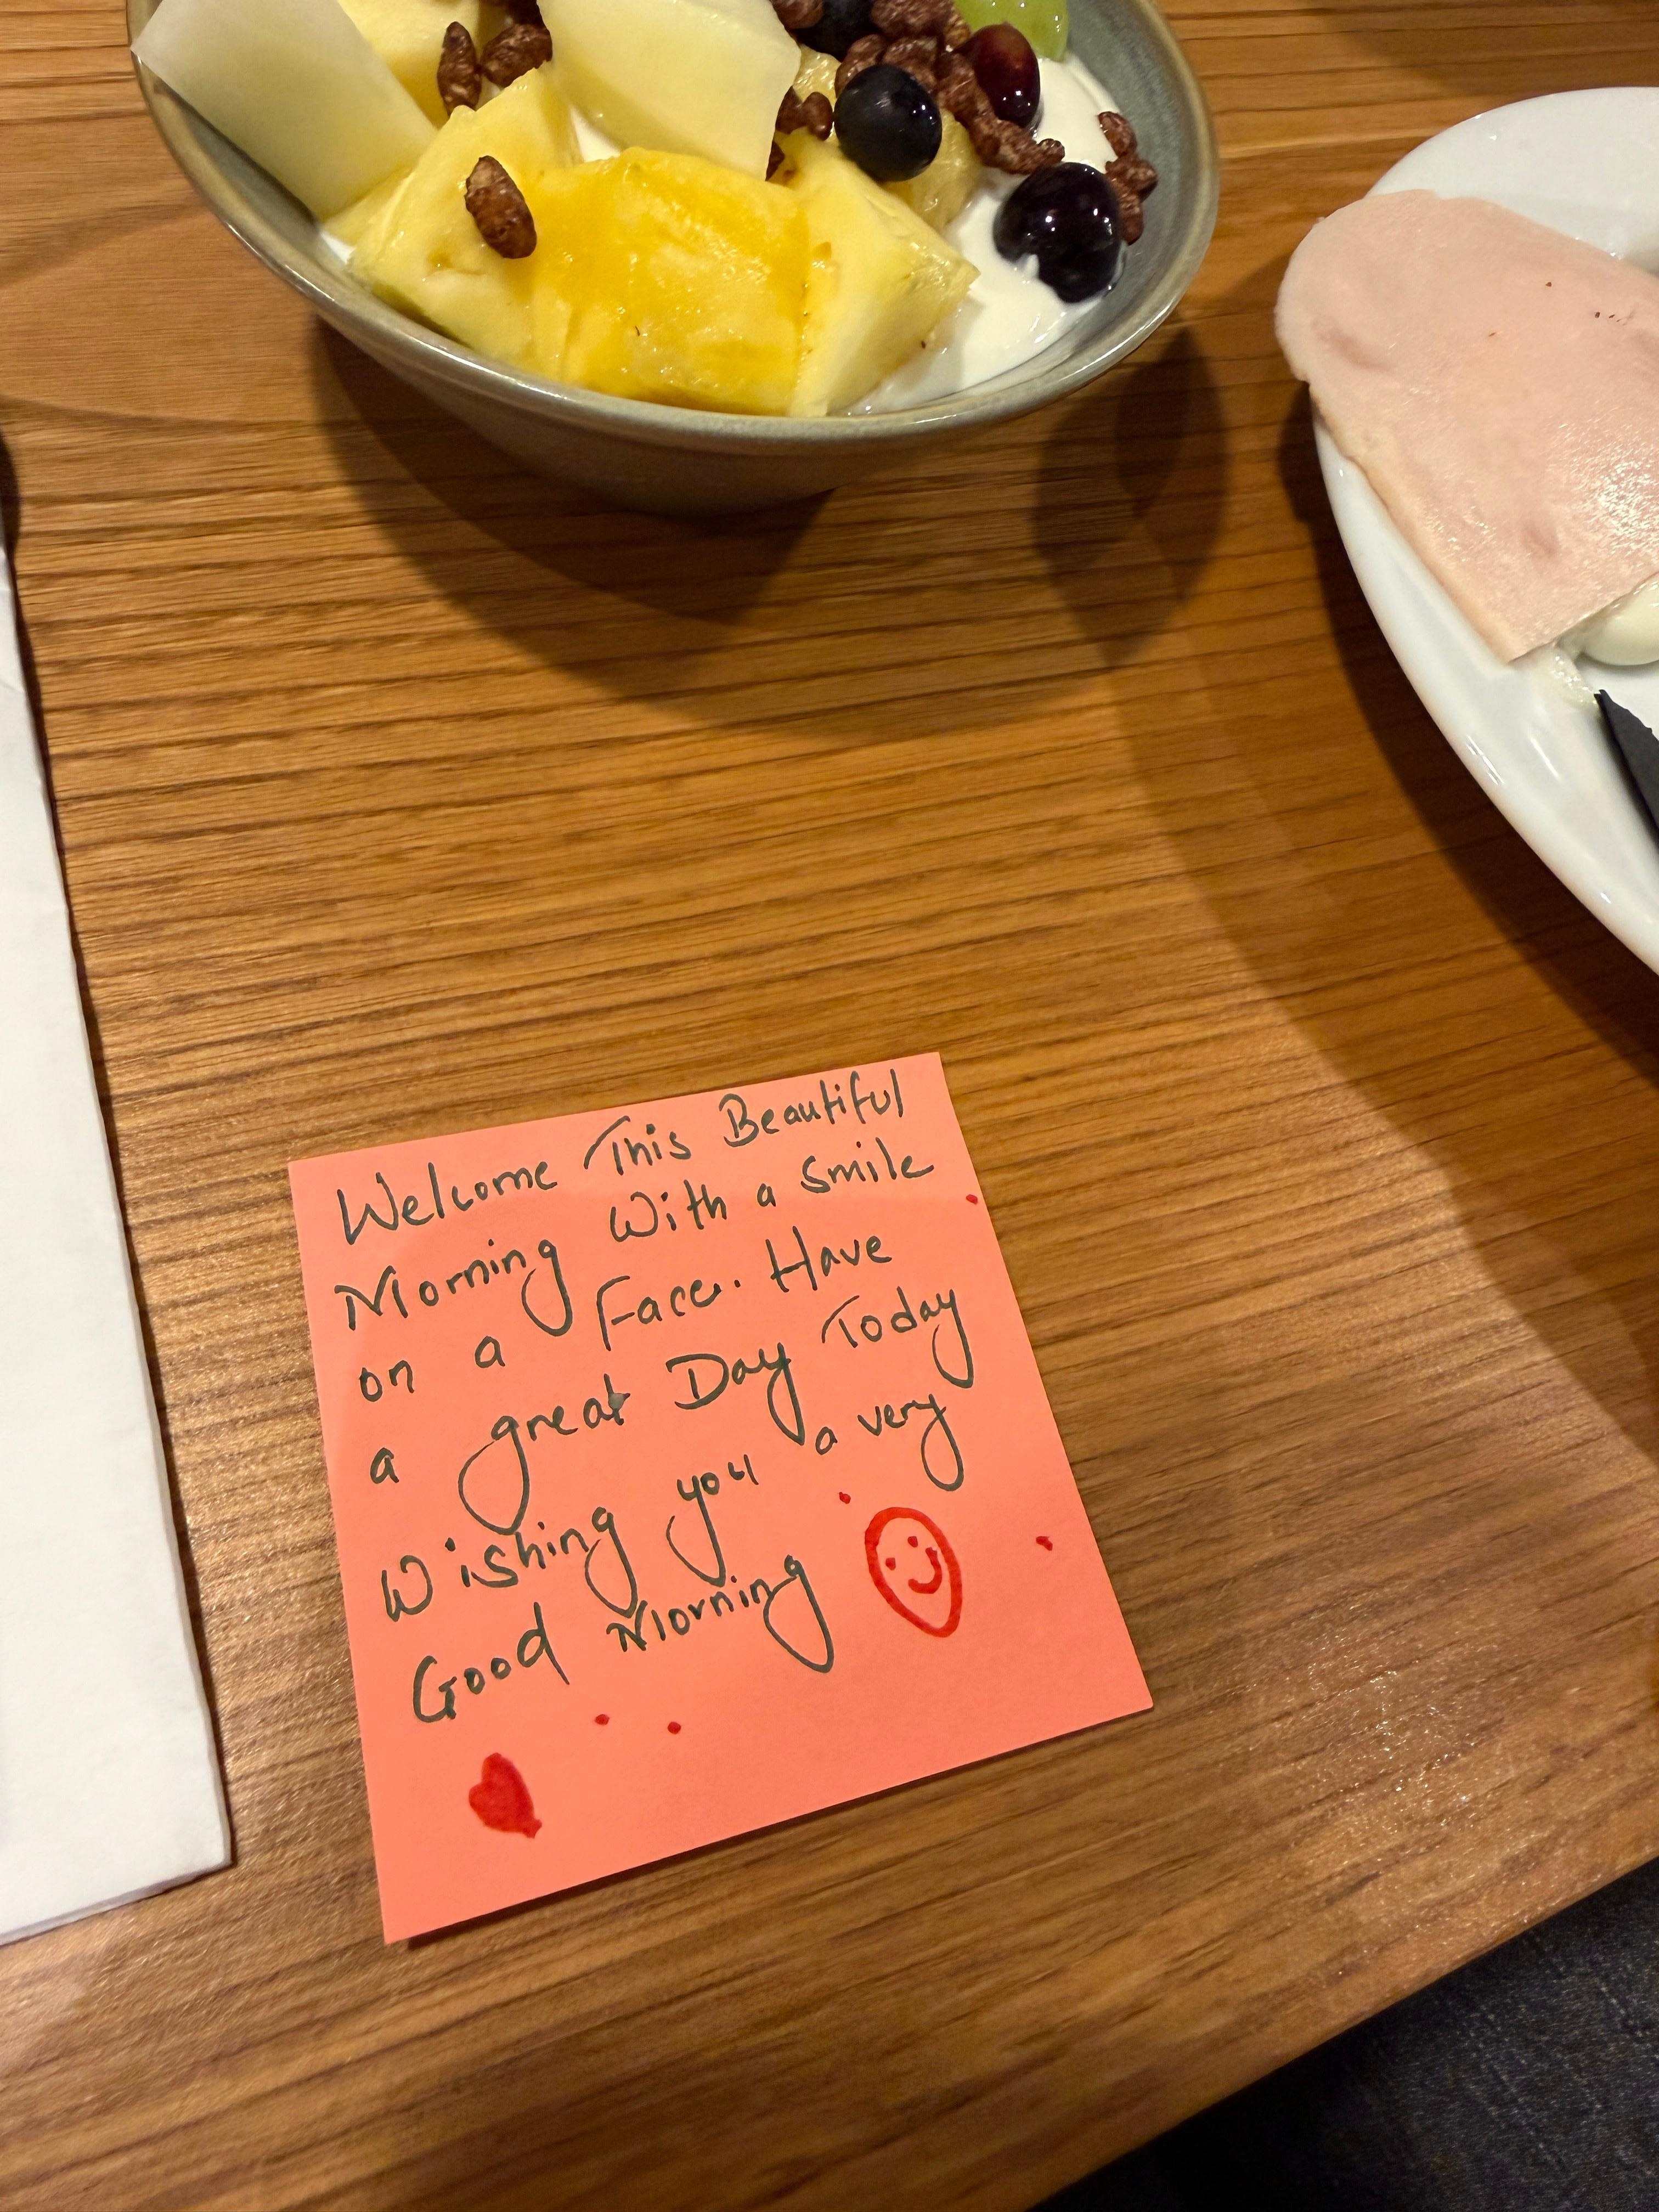 Welcome This Beautiful
Morning With a smile
on a Face. Have
a great Day Today
Wishing you a very
Good Morning